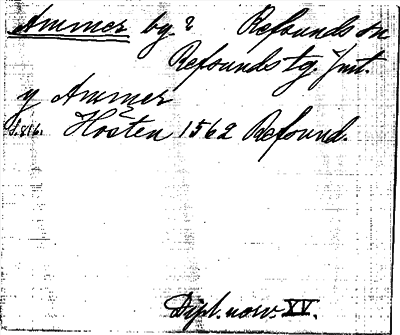 Ammer bg. ? Refsunds sn
Refsunds tg. Jmt.
y Ammer
s. 816. Hösten 1562 Refsund.
Dipl. norv. XV.